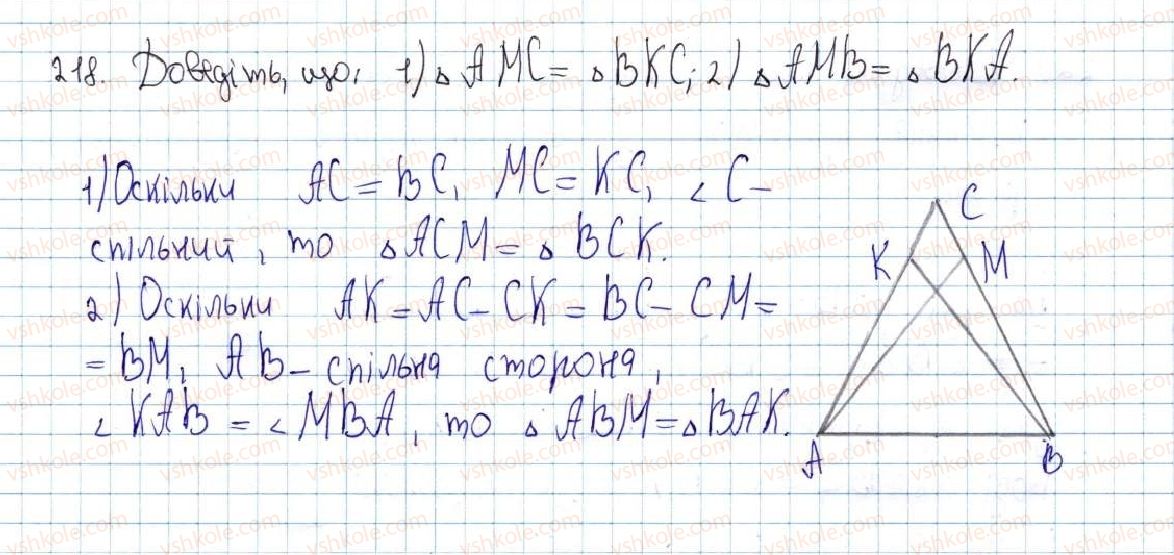 218. Доведіть, що: 1) △AMC = △BKC; 2) △AMB = △BKA.
1) Оскільки AC = BC, MC = KC, ∠C –
спільний, то △ACM = △BCK.
2) Оскільки AK = AC – CK = BC – CM =
= BM, AB – спільна сторона,
∠KAB = ∠MBA, то △ABM = △BAK.
C
K M
A B
vshkole.com